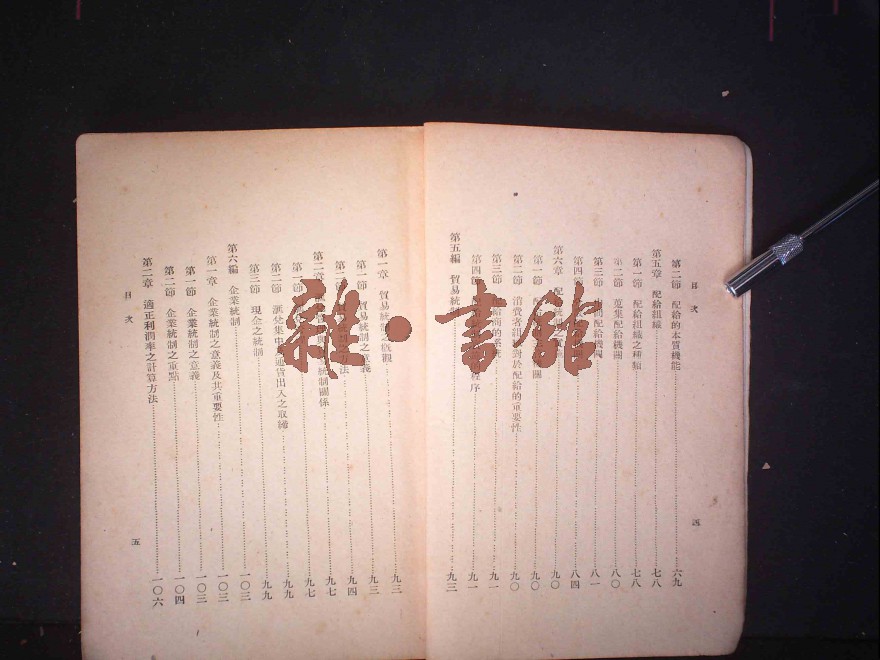 目次
第二節 配給的本質機能 六九
第五章 配給組織 七八
第一節 配給組織之種類 七八
第二節 蒐集配給機關 八〇
第三節 配給機關 八一
第四節 八四
第六章 配給 九〇
第一節 配 機關 九〇
第二節 消費者組 對於配給的重要性 九〇
第三節 給商的 九一
第四節 配 程序 九一
第五編 貿易統 九三
四
雜·書館
第一章 貿易統制之概觀 九三
第一節 貿易統制之意義 九三
第二節 法 九四
第二章 統制關係 九七
第一節 九七
第二節 匯兌集中 通貨出入之取締 九九
第三節 現金之統制 九九
第六編 企業統制 一〇三
第一章 企業統制之意義及其重要性 一〇三
第一節 企業統制之意義 一〇三
第二節 企業統制之重點 一〇四
第二章 適正利潤率之計算方法 一〇六
目次
五